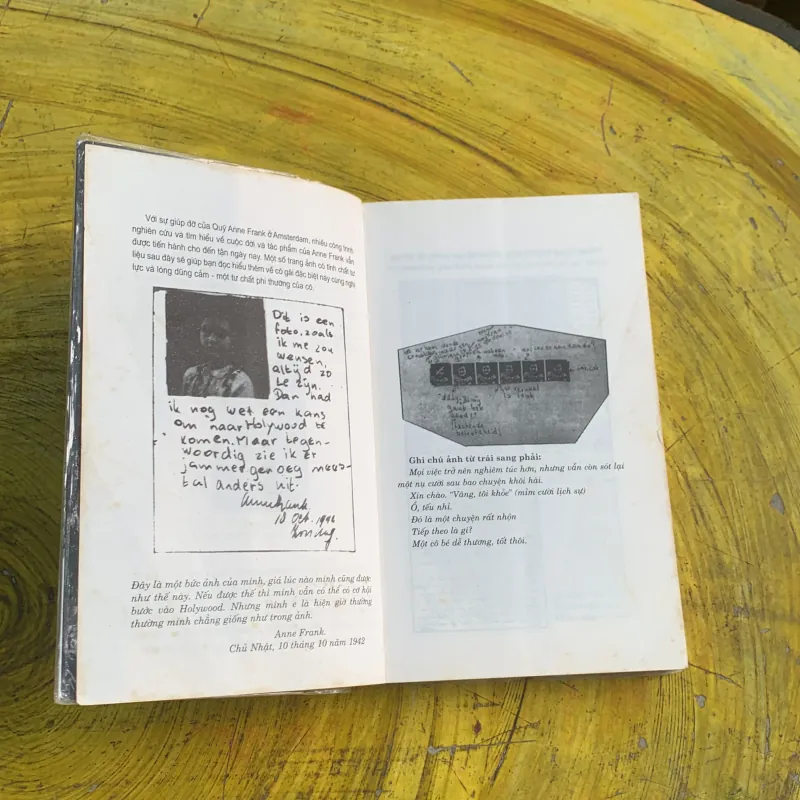 Với sự giúp đỡ của Quỹ Anne Frank ở Amsterdam, nhiều công trình
nghiên cứu và tìm hiểu về cuộc đời và tác phẩm của Anne Frank vẫn
được tiến hành cho đến tận ngày nay. Một số trang ảnh có tính chất tư
liệu sau đây sẽ giúp bạn đọc hiểu thêm về cô gái đặc biệt này cùng nghị
lực và lòng dũng cảm - một tư chất phi thường của cô.
Dit is een
foto, zoals
ik me zou
wensen,
altijd zo
te zijn.
Dan had
ik nog wel een kans
om naar Holywood te
komen. Maar tegen-
woordig zie ik er
jammer genoeg mees-
tal anders uit.
Anne Frank.
10 Oct. 1942
Đây là một bức ảnh của mình, giá lúc nào mình cũng được
như thế này. Nếu được thế thì mình vẫn có thể có cơ hội
bước vào Holywood. Nhưng mình e là hiện giờ thường
thường mình chẳng giống như trong ảnh.
Anne Frank.
Chủ Nhật, 10 tháng 10 năm 1942
Ghi chú ảnh từ trái sang phải:
Mọi việc trở nên nghiêm túc hơn, nhưng vẫn còn sót lại
một nụ cười sau bao chuyện khôi hài.
Xin chào. "Vâng, tôi khỏe" (mỉm cười lịch sự)
Ồ, tếu nhỉ.
Đó là một chuyện rất nhộn
Tiếp theo là gì?
Một cô bé dễ thương, tốt thôi.